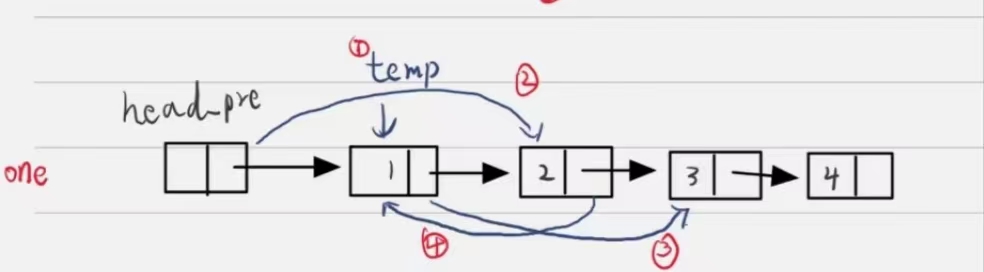 ① temp ②
head_pre
one 1 2 3 4
④ ③